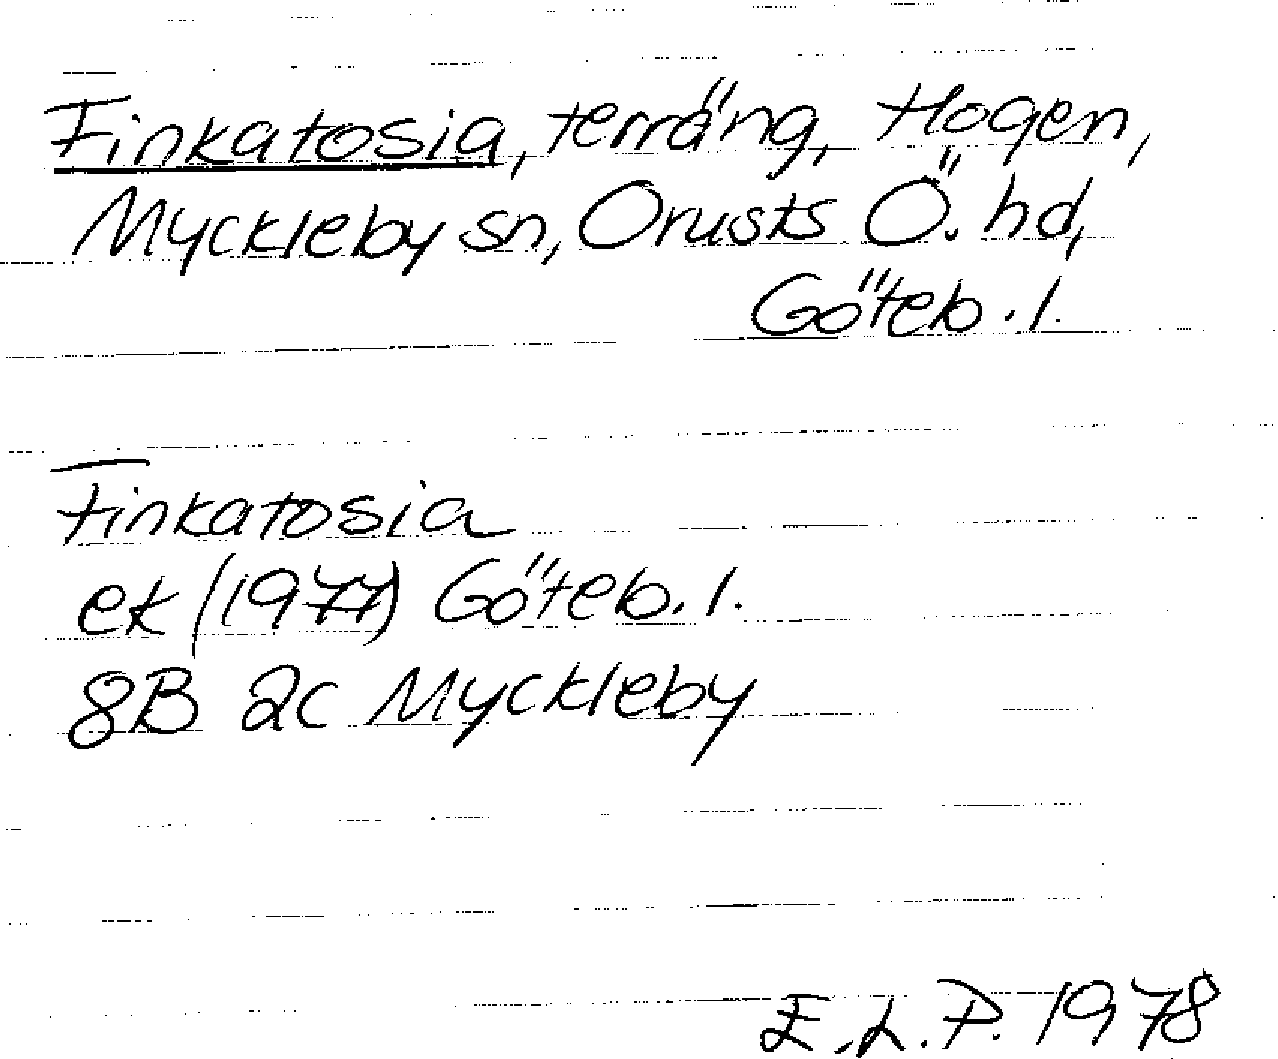 Finkatosia, terräng, Hogen,
Myckleby sn, Orusts Ö. hd,
Göteb. l.
Finkatosia
ek (1977) Göteb. l.
8B 2c Myckleby
E.L.P. 1978